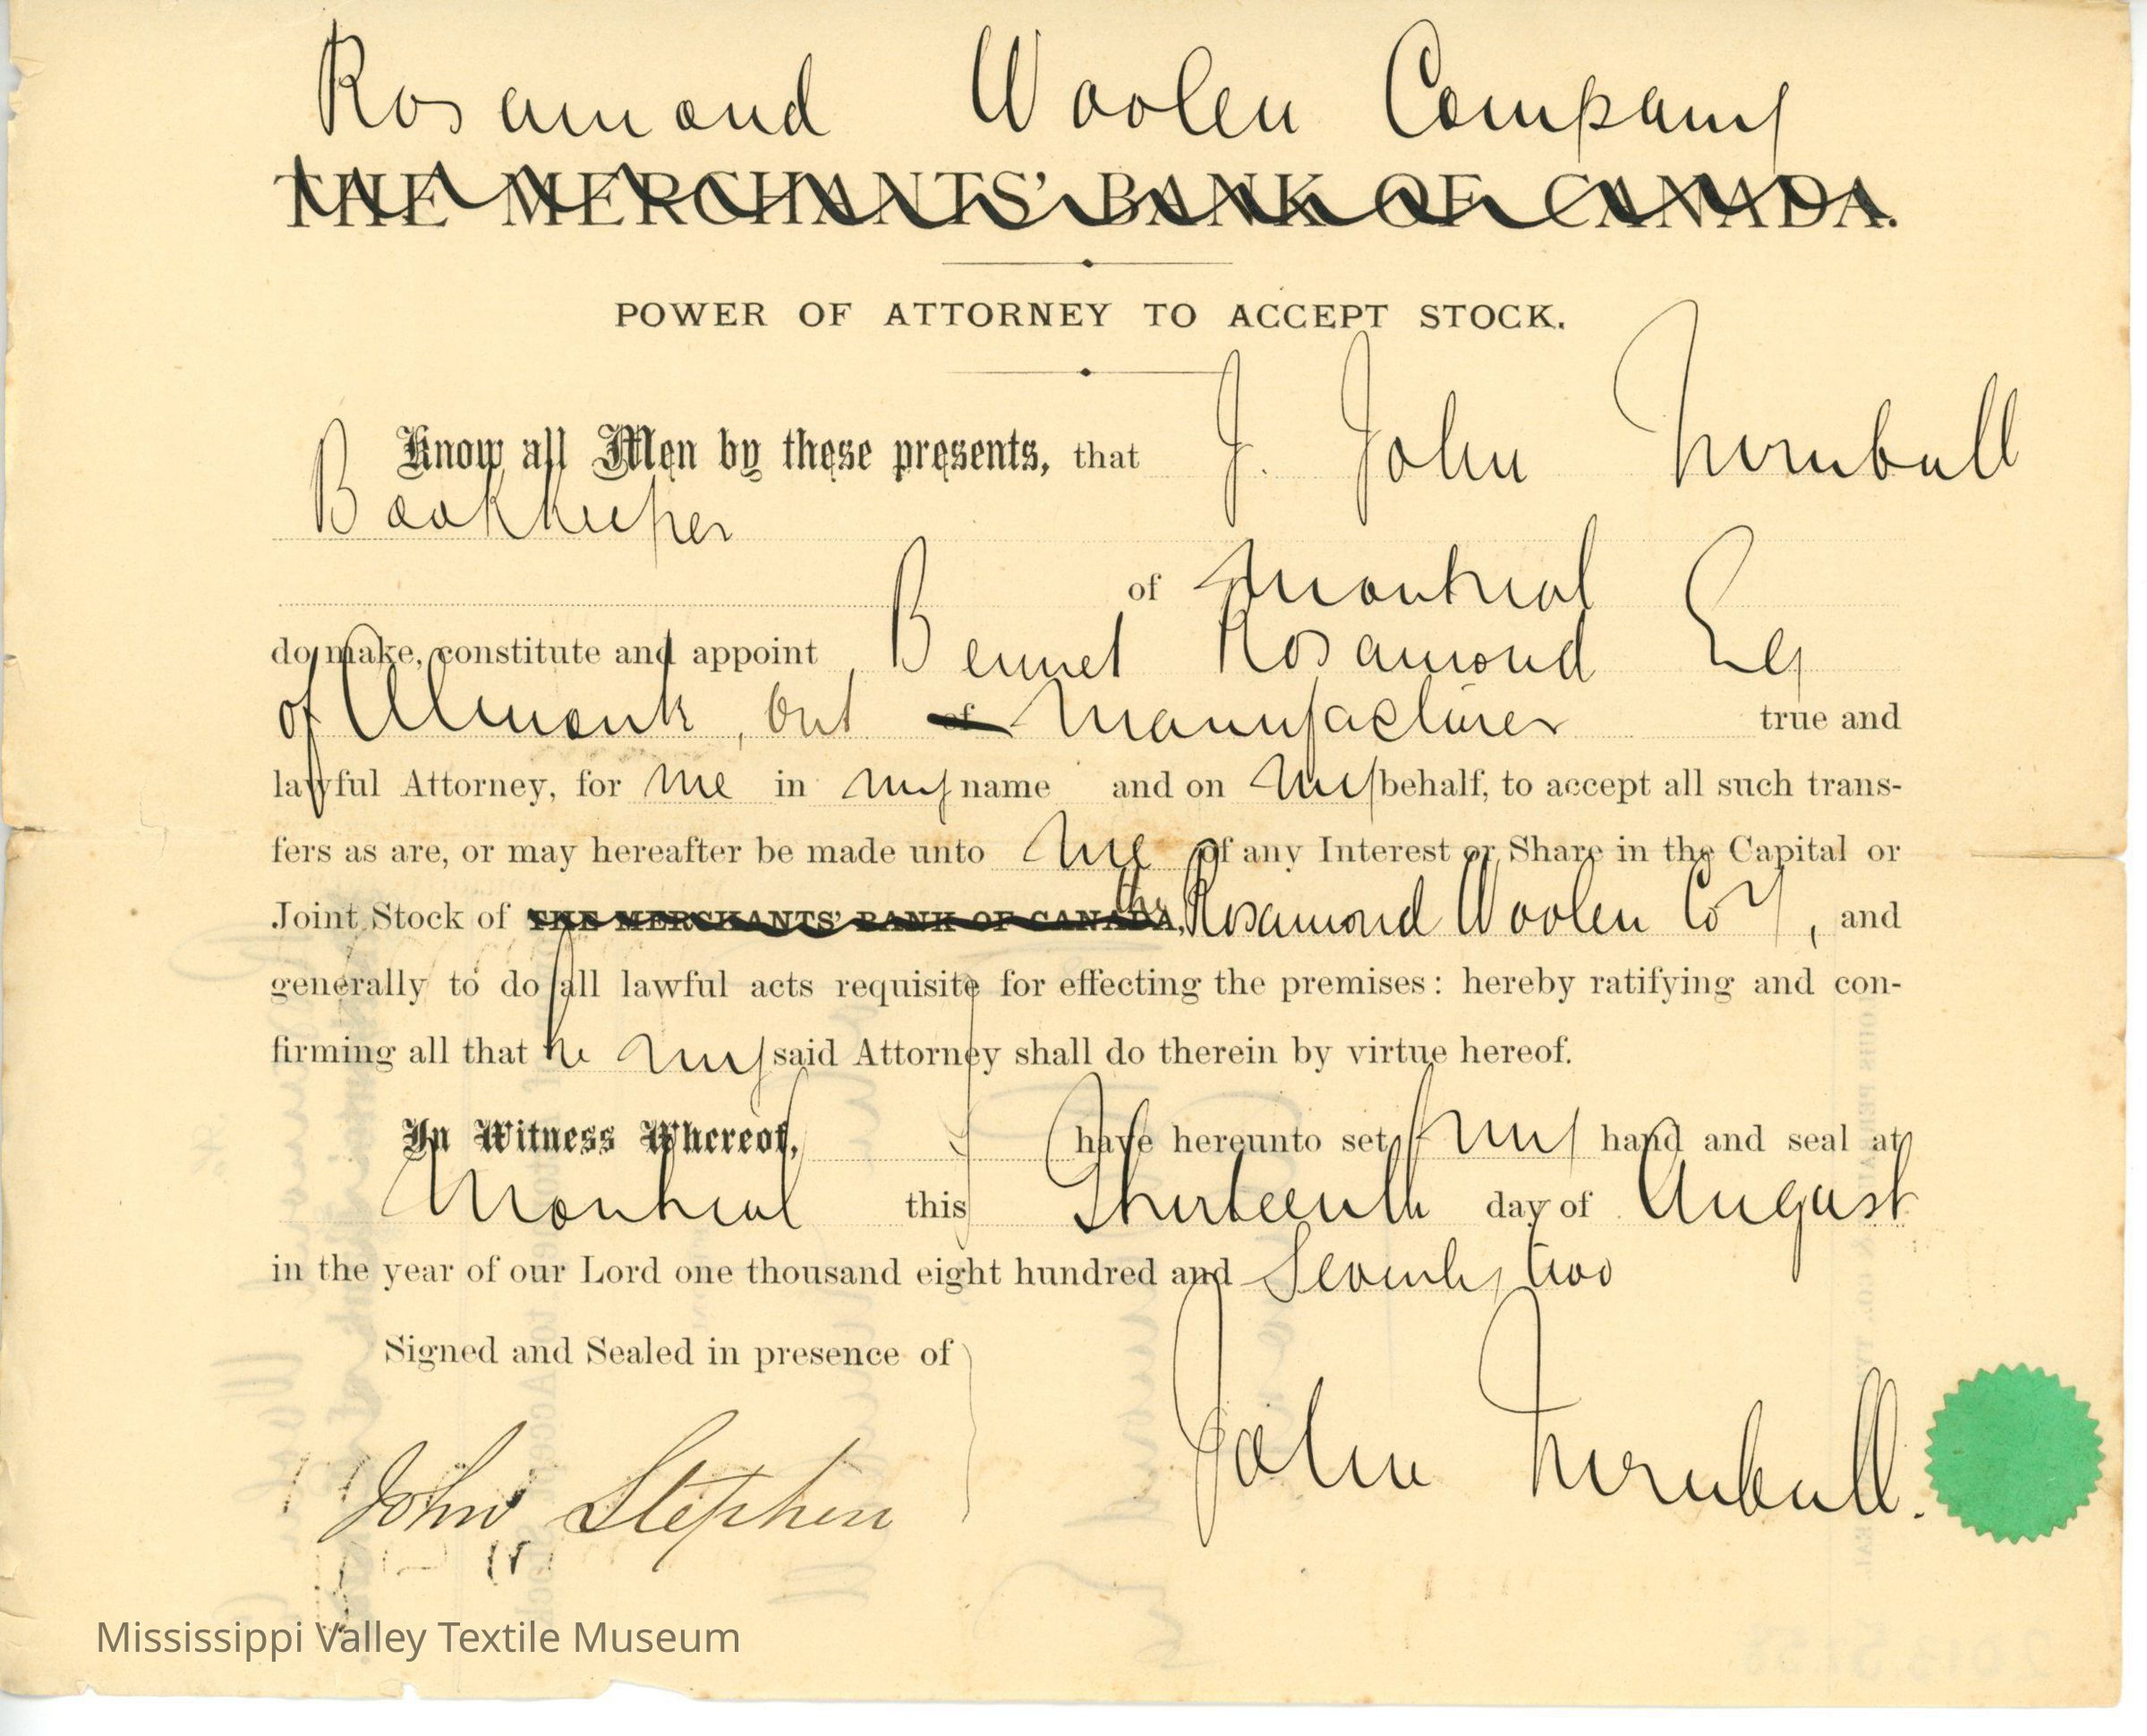 Rosamond Woolen Company
THE MERCHANTS' BANK OF CANADA.
POWER OF ATTORNEY TO ACCEPT STOCK.
Know all Men by these presents, that I. John Turnbull
Bookkeeper
of Montreal
do make, constitute and appoint Bennet Rosamond Esq
of Almonte, Ont of Manufacturer true and
lawful Attorney, for me in my name and on my behalf, to accept all such trans-
fers as are, or may hereafter be made unto me of any Interest or Share in the Capital or
Joint Stock of THE MERCHANTS' BANK OF CANADA, the Rosamond Woolen Coy, and
generally to do all lawful acts requisite for effecting the premises: hereby ratifying and con-
firming all that he my said Attorney shall do therein by virtue hereof.
In Witness Whereof, I have hereunto set my hand and seal at
Montreal this Thirteenth day of August
in the year of our Lord one thousand eight hundred and Seventy two
Signed and Sealed in presence of
John Stephen
John Turnbull.
Mississippi Valley Textile Museum